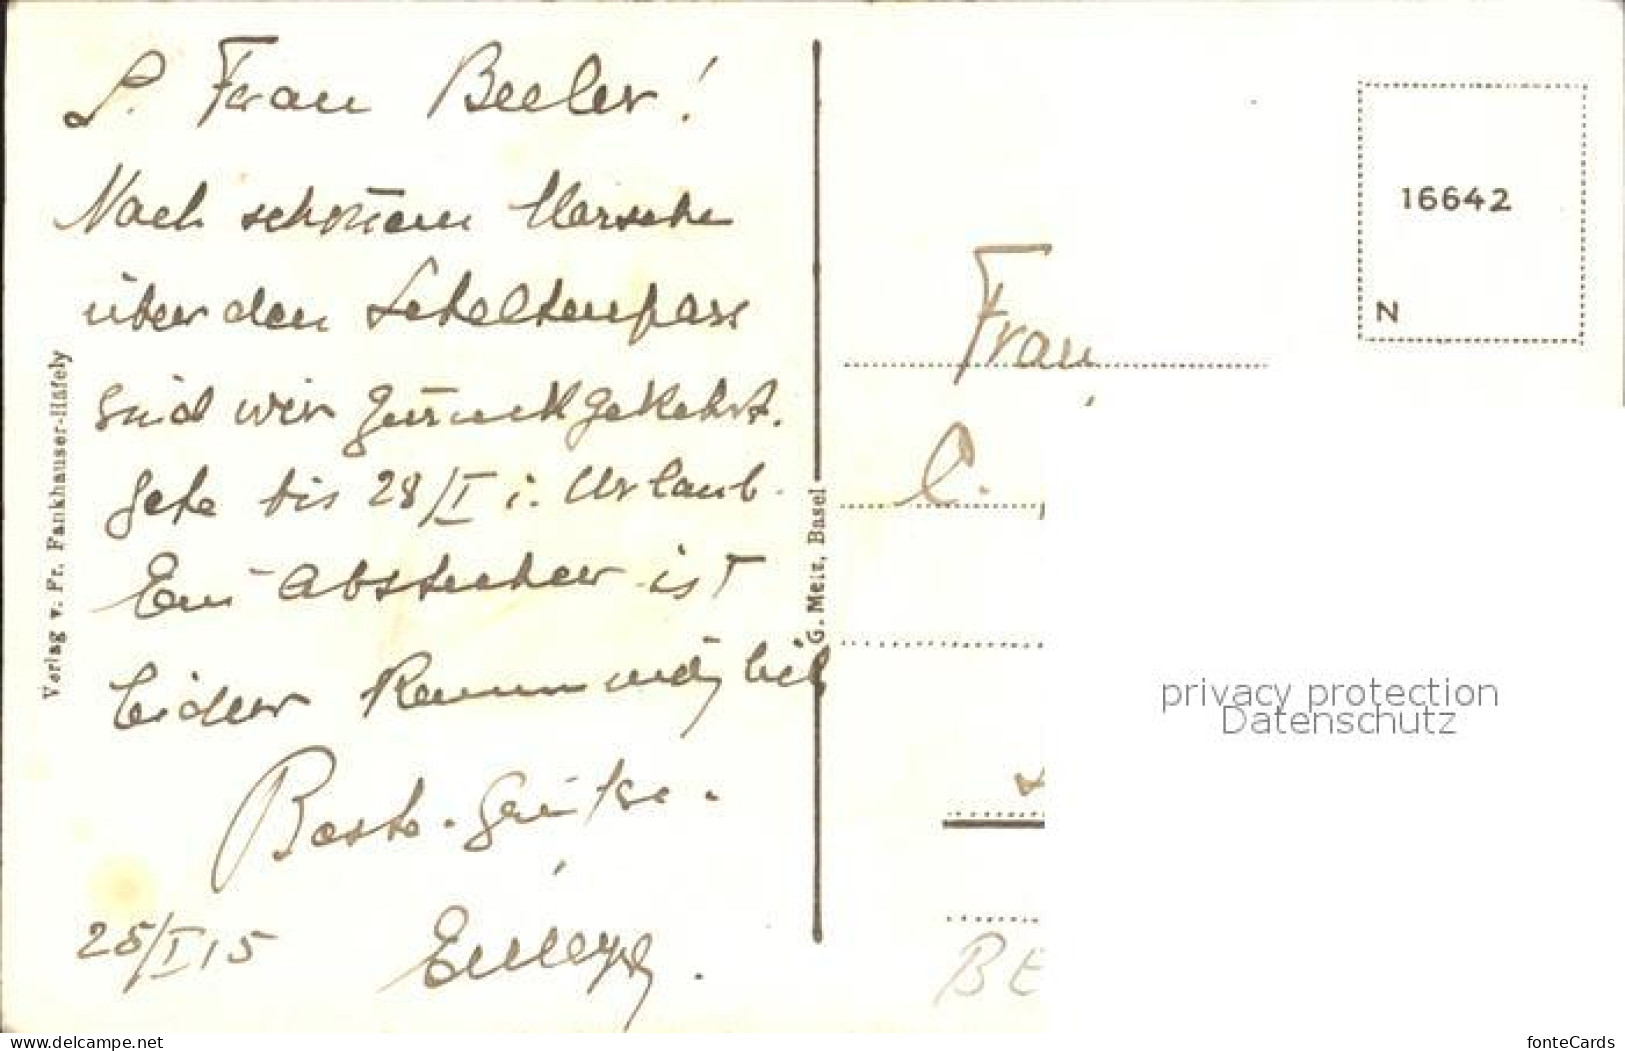 L. Frau Beeler!
Nach schönem Marsche
über den Scheltenpass
sind wir zurückgekehrt.
Gehe bis 28/I i. Urlaub.
Ein Abstecher ist
leider kaum möglich
Beste Grüsse.
25/I 15
Verlag v. Fr. Fankhauser-Häfely
G. Metz, Basel
16642
N
Frau
C.
BE
privacy protection
Datenschutz
www.delcampe.net
fonteCards